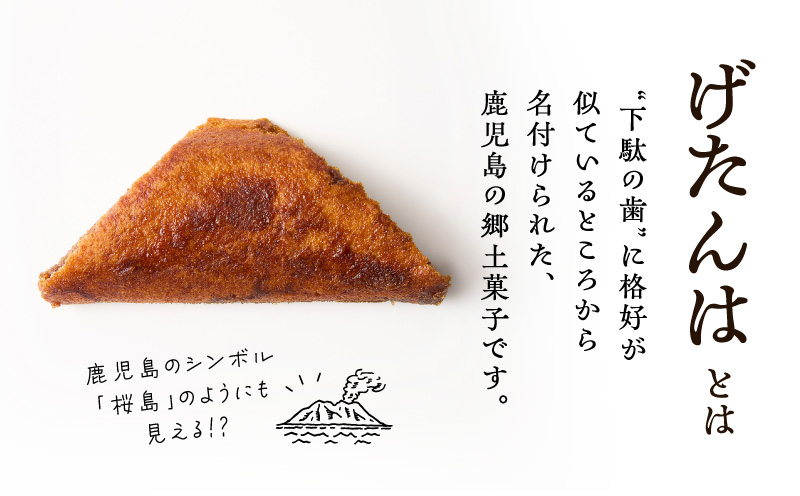 げたんは とは
〝下駄の歯〟に格好が
似ているところから
名付けられた、
鹿児島の郷土菓子です。
鹿児島のシンボル
「桜島」のようにも
見える!?